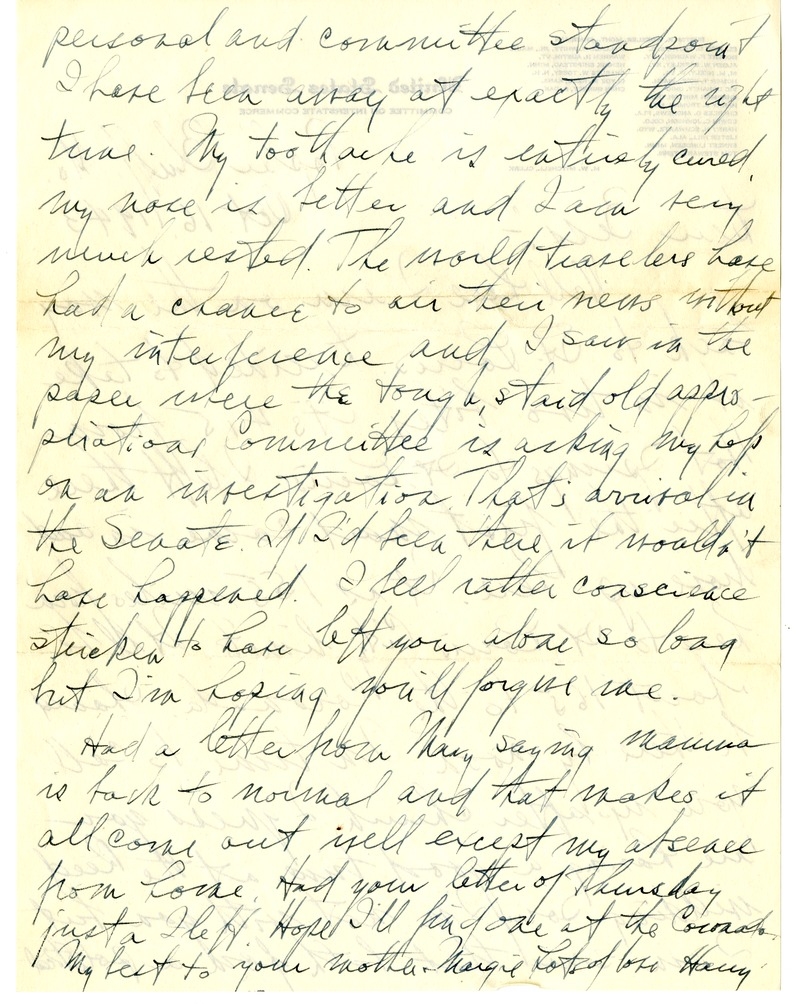 personal and committee standpoint
I have been away at exactly the right
time. My toothache is entirely cured,
my nose is better and I am very
much rested. The world travelers have
had a chance to air their views without
my interference and I saw in the
paper where the tough, staid old appro-
priations Committee is asking my help
on an investigation. That's arrival in
the Senate. If I'd been there it wouldn't
have happened. I feel rather conscience
stricken to have left you alone so long
but I'm hoping you'll forgive me.
Had a letter from Mary saying mamma
is back to normal and that makes it
all come out well except my absence
from home. Had your letter of Thursday
just a I left. Hope I'll find one at the Coronado.
My best to your mother. Margie Lots of love Harry